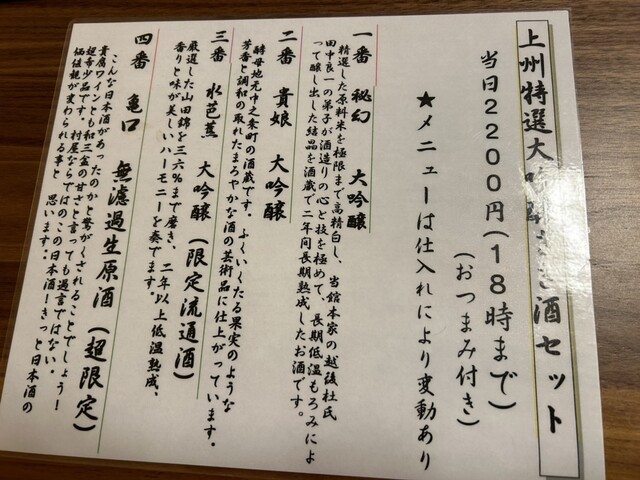 上州特選大吟醸きき酒セット
当日2200円(18時まで)
(おつまみ付き)
★メニューは仕入れにより変動あり
一番 秘幻 大吟醸
精選した原料米を極限まで高精白し、当館本家の越後杜氏
田中良一の弟子が酒造りの心と技を極めて、長期低温もろみによ
って醸し出した結晶を酒蔵で二年間長期熟成したお酒です。
二番 貴娘 大吟醸
酵母地元中之条町の酒蔵です。ふくいくたる果実のような
芳香と調和の取れたまろやかな酒の芸術品に仕上がっています。
三番 水芭蕉 大吟醸(限定流通酒)
厳選した山田錦を三六%まで磨き、二年以上低温熟成、
香りと味が美しいハーモニーを奏でます。
四番 亀口 無濾過生原酒(超限定)
こんな日本酒があったのかと驚がくされることでしょう!
貴腐ワインとも和三盆の甘さと言っても過言ではない。
超希少品です。村屋ならではのこの日本酒!きっと日本酒の
価値観が変わられる事と思います..